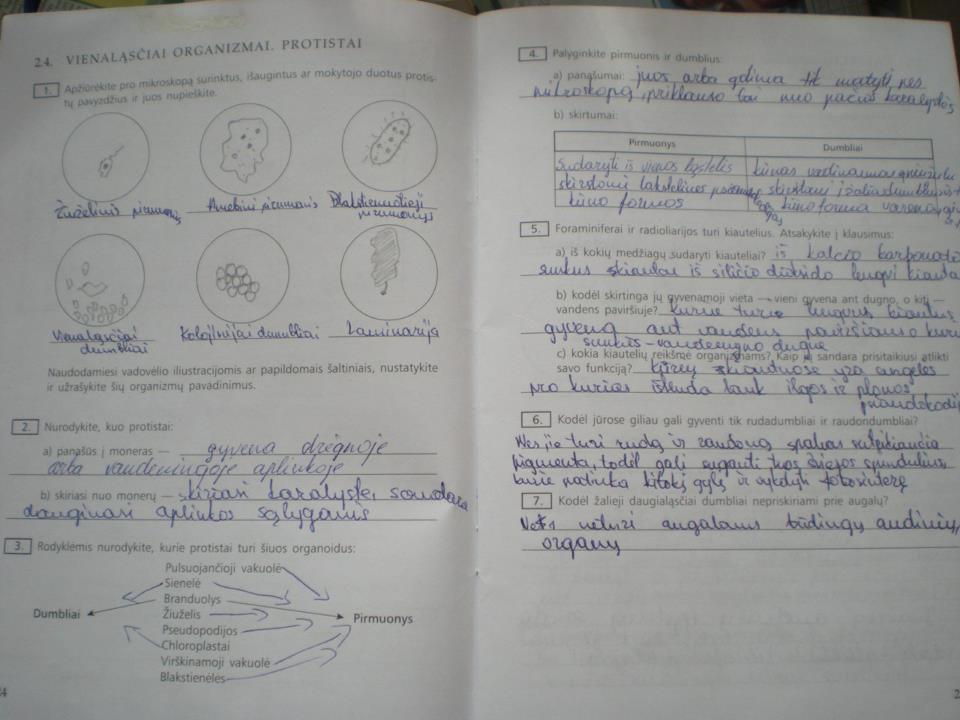 2.4. VIENALĄSČIAI ORGANIZMAI. PROTISTAI
1. Apžiūrėkite pro mikroskopą surinktus, išaugintus ar mokytojo duotus protis-
tų pavyzdžius ir juos nupieškite.
Žiuželinis
Amebiniai pirmuonis
Blakstienuotieji
pirmuonys
Vienaląsčiai
dumbliai
Kolonijiniai dumbliai
Laminarija
Naudodamiesi vadovėlio iliustracijomis ar papildomais šaltiniais, nustatykite
ir užrašykite šių organizmų pavadinimus.
2. Nurodykite, kuo protistai:
a) panašūs į moneras — gyvena drėgnoje
arba vandeningoje aplinkoje
b) skiriasi nuo monerų — skiriasi karalystė, sandara
dauginasi aplinkos sąlygomis
3. Rodyklėmis nurodykite, kurie protistai turi šiuos organoidus:
Pulsuojančioji vakuolė
Sienelė
Branduolys
Dumbliai
Žiuželis
Pirmuonys
Pseudopodijos
Chloroplastai
Virškinamoji vakuolė
Blakstienėlės
24
4. Palyginkite pirmuonis ir dumblius:
a) panašumai: juos arba gdima tik matyti pes
mikroskopą, priklauso tai nuo pačios karalystės
b) skirtumai:
Pirmuonys Dumbliai
Sudaryti iš vienos ląstelės kūnas vadinamas
skirstomi skirstomi į žaliadumblius
kūno formos kūno forma
5. Foraminiferai ir radioliarijos turi kiautelius. Atsakykite į klausimus:
a) iš kokių medžiagų sudaryti kiauteliai? iš kalcio karbonato
sunkus skiautai iš silicio dioksido lengvi kiautai
b) kodėl skirtinga jų gyvenamoji vieta — vieni gyvena ant dugno, o kiti —
vandens paviršiuje? kurie turi lengvus kiautus
gyvena ant vandens paviršiaus o kuri
sunkus - vandengno dugne
c) kokia kiautelių reikšmė organizmams? Kaip jų sandara prisitaikiusi atlikti
savo funkciją? kurių skiautuose yra angelės
pro kurias išlenda lauk ilgos ir plonos
pseudokodij
6. Kodėl jūrose giliau gali gyventi tik rudadumbliai ir raudondumbliai?
Nes jie turi rudą ir raudoną spalvas suteikiančia
pigmentą, todėl gali sugauti tuos šviesos spindulius,
kurie patinka kitokį gylį ir vykdyti fotosintezę
7. Kodėl žalieji daugialąsčiai dumbliai nepriskiriami prie augalų?
Nes neturi augalams būdingų audinių,
organų
2